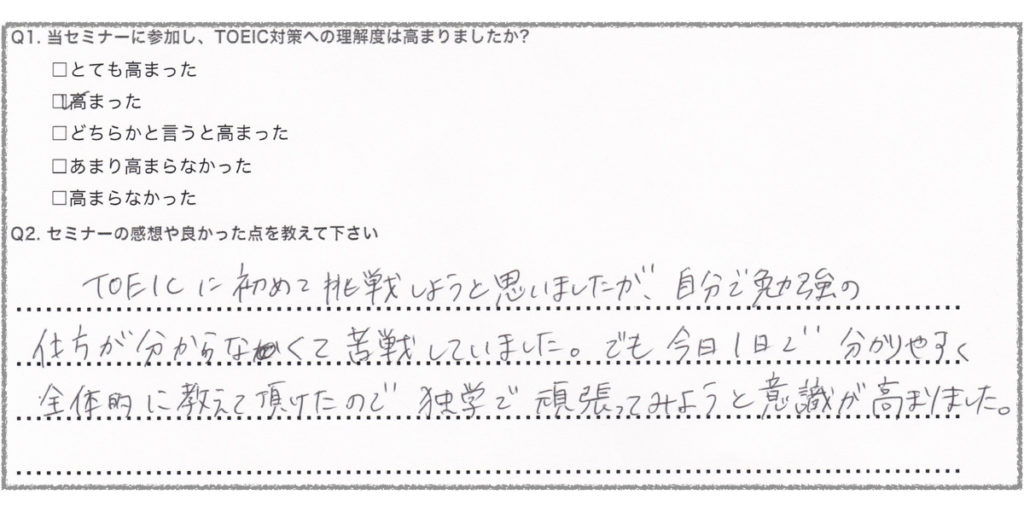 Q1. 当セミナーに参加し、TOEIC対策への理解度は高まりましたか?
□とても高まった
☑高まった
□どちらかと言うと高まった
□あまり高まらなかった
□高まらなかった
Q2. セミナーの感想や良かった点を教えて下さい
TOEICに初めて挑戦しようと思いましたが、自分で勉強の
仕方が分からなくて苦戦していました。でも今日1日で分かりやすく
全体的に教えて頂けたので独学で頑張ってみようと意識が高まりました。